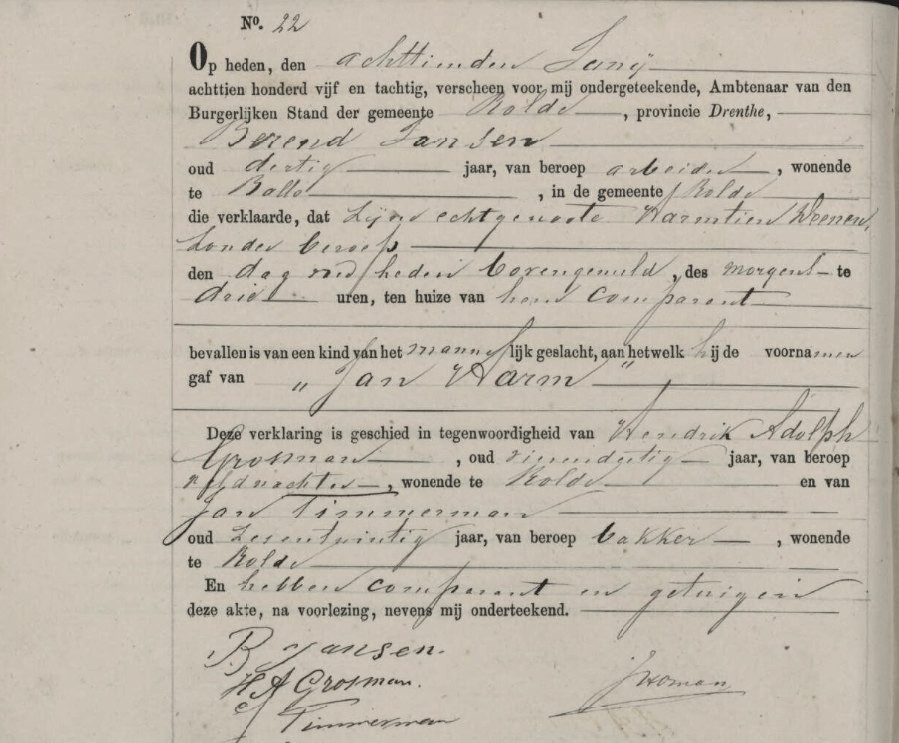 No. 22
Op heden, den achttienden Junij
achttien honderd vijf en tachtig, verscheen voor mij ondergeteekende, Ambtenaar van den
Burgerlijken Stand der gemeente Rolde, provincie Drenthe,
Berend Jansen
oud dertig jaar, van beroep arbeider, wonende
te Balloo, in de gemeente Rolde
die verklaarde, dat zijne echtgenoote Harmtien Weenen,
zonder beroep
den dag van heden bovengemeld, des morgens te
drie uren, ten huize van hem comparant
bevallen is van een kind van het mannelijk geslacht, aan hetwelk hij de voornamen
gaf van „Jan Harm"
Deze verklaring is geschied in tegenwoordigheid van Hendrik Adolph
Grosman, oud vierendertig jaar, van beroep
veldwachter, wonende te Rolde en van
Jan Timmerman
oud zesentwintig jaar, van beroep bakker, wonende
te Rolde
En hebben comparant en getuigen
deze akte, na voorlezing, nevens mij onderteekend.
B Jansen.
H A Grosman.
J Timmerman